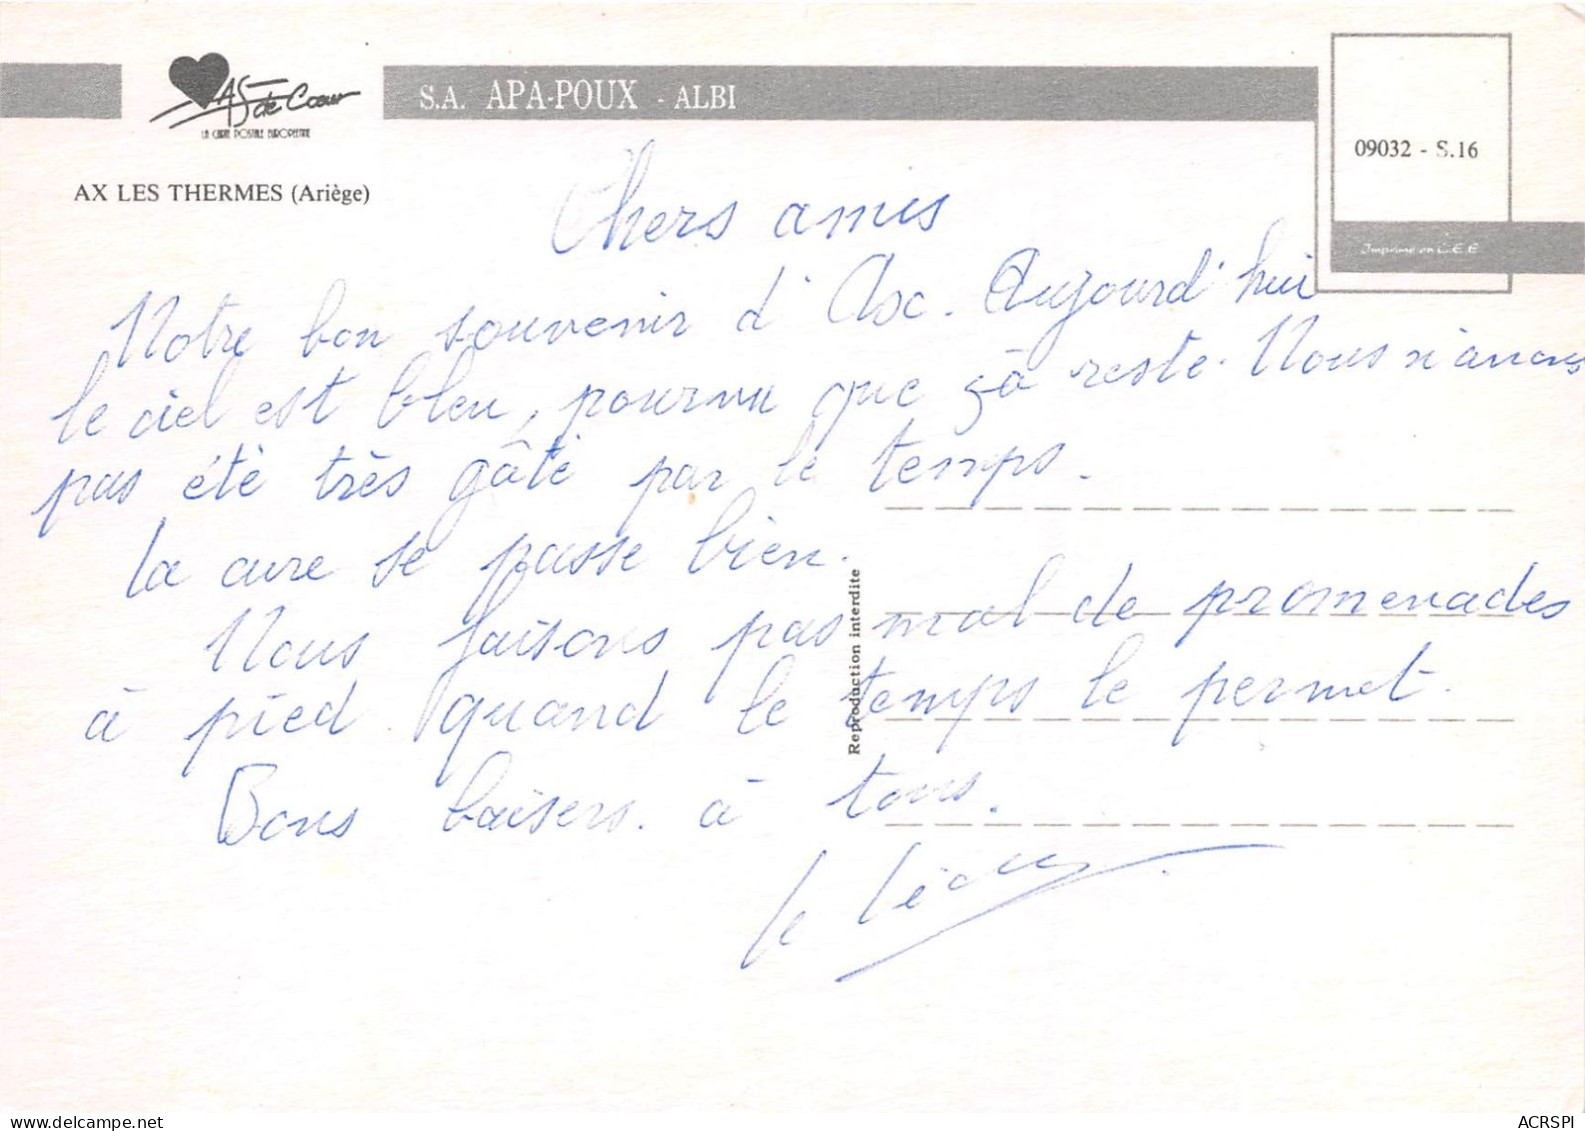 AS de Cœur
LA CARTE POSTALE EUROPEENNE
S.A. APA-POUX - ALBI
09032 - S.16
Imprimé en C.E.E
AX LES THERMES (Ariège)
Chers amis
Notre bon souvenir d'Ax. Aujourd'hui
le ciel est bleu, pourvu que çà reste. Nous n'avons
pas été très gâté par le temps.
La cure se passe bien.
Nous faisons pas mal de promenades
à pied quand le temps le permet.
Bons baisers à tous.
Reproduction interdite
ACRSPI